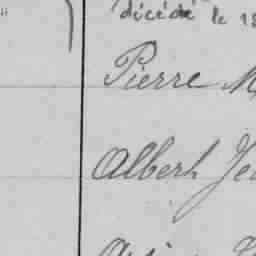 décédé le 18
Pierre M
Albert Je